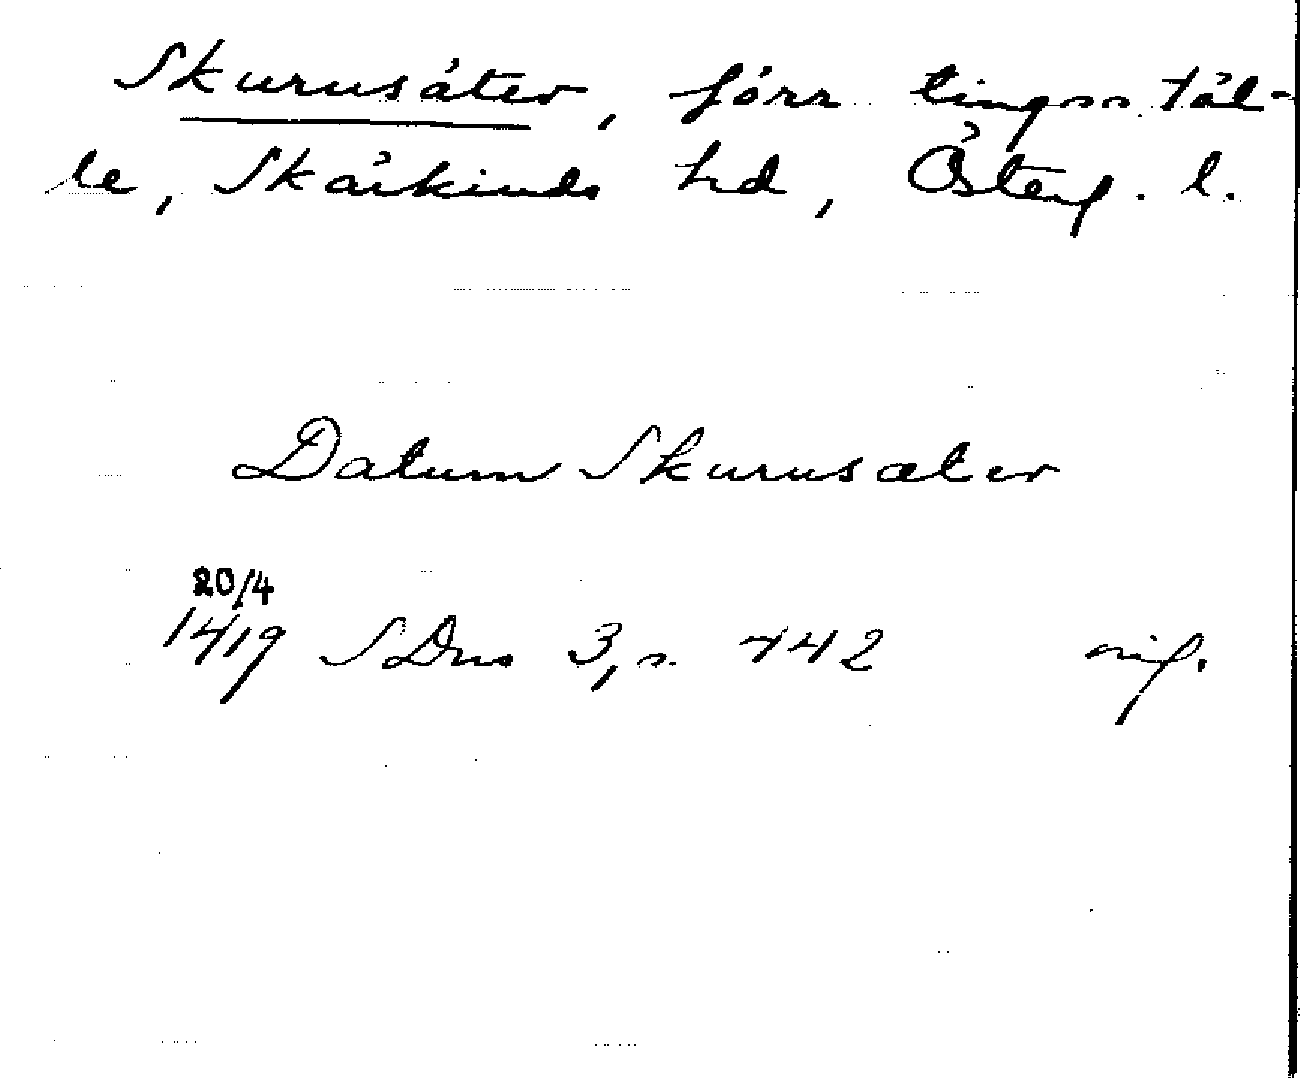 Skurusäter, förr tingsstäl-
le, Skärkinds hd, Österg. l.
Datum Skurusæter
20/4
1419 SDns 3, s. 442 nif.